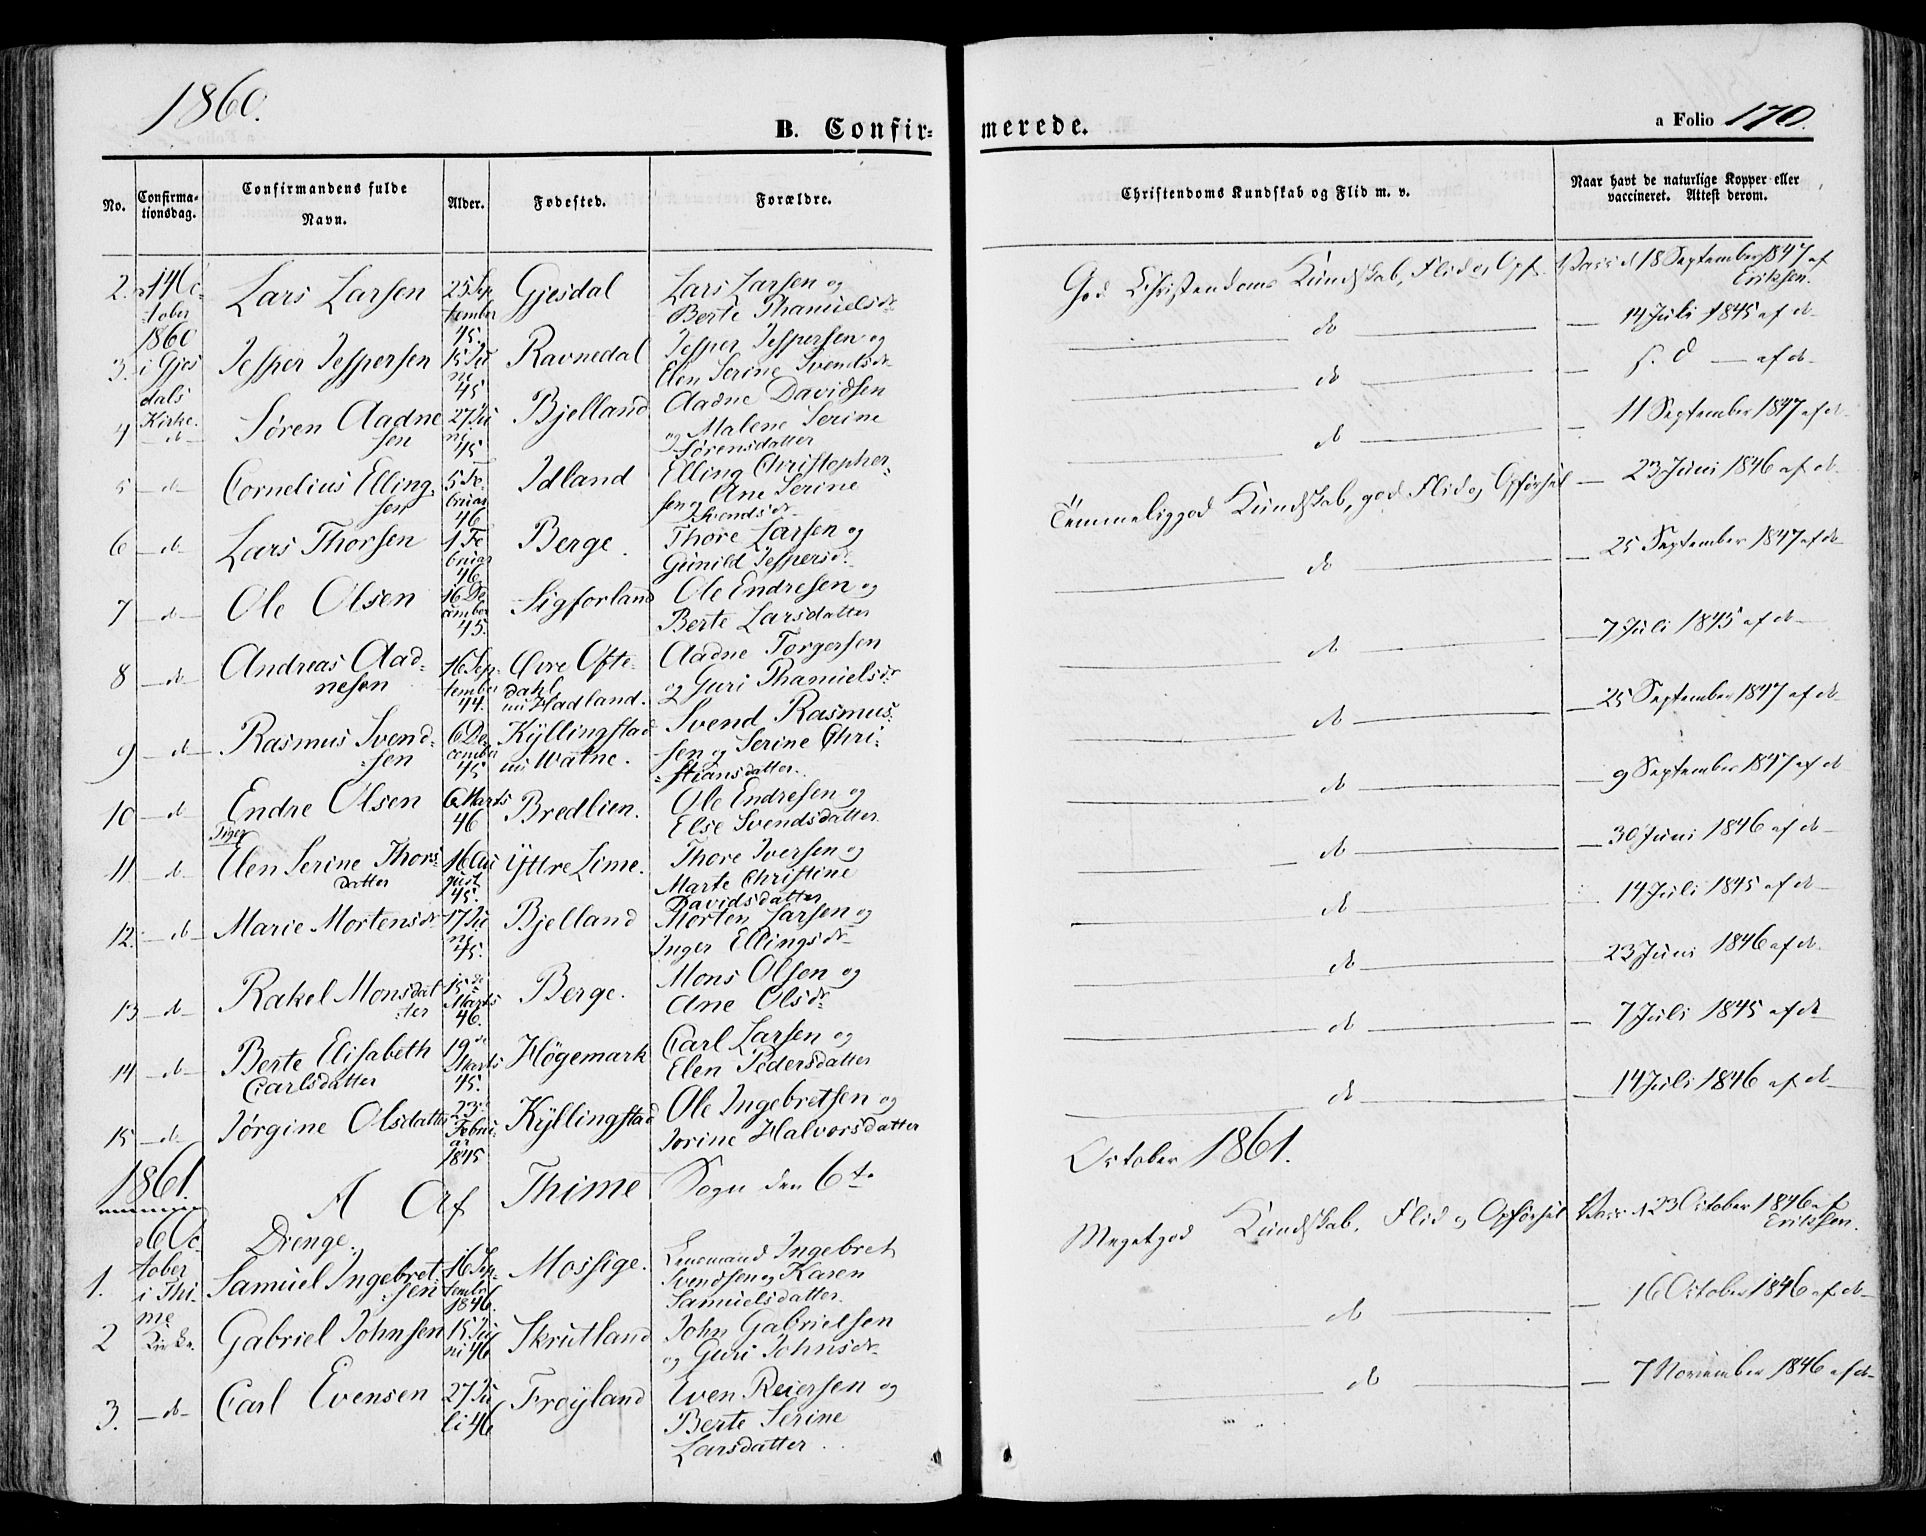 1860.
B. Confir-
merede.
a Folio 170.
No.
Confirma-
tionsdag.
Confirmandens fulde
Navn.
Alder.
Fødested.
Forældre.
Christendoms Kundskab og Flid m. v.
Naar havt de naturlige Kopper eller
vaccineret. Attest derom.
2. 14 Oc-
tober
1860
i Gjes
dals
Kirke.
Lars Larsen
25 Sep
tember
45.
Gjesdal
Lars Larsen og
Berte Thamuelsdr
God Christendoms Kundskab, Flid og Opf.
Vacc. d 18 September 1847 af
Eriksen.
3.
Jesper Jespersen
15 Ju
ni
45
Ravnedal
Jesper Jespersen og
Elen Serine Svendsdr
do
14 Juli 1845 af do
4 -do-
Søren Aadne
sen
27 Ju
ni
45
Bjelland
Aadne Davidsen
og Malene Serine
Sørensdatter
do
s. d - af do
5 -do-
Cornelius Elling-
sen
5 Fe-
bruar
46
Idland
Elling Christopher-
sen og Ane Serine
Svendsdr
do
11 September 1847 af do
6 -do-
Lars Thorsen
1 Fe
bruar
46
Berge.
Thore Larsen og
Gunild Jespersdr
Temmelig god Kundskab, god Flid og Opførsel
23 Juni 1846 af do
7 -do-
Ole Olsen
16 De
cember
45.
Sigforland
Ole Endresen og
Berte Larsdatter
do
25 September 1847 af do
8 -do-
Andreas Aad-
nesen
16 Sep-
tember
44.
Øvre Ofte-
dahl
nu Hadland.
Aadne Torgersen
og Guri Thamielsdr
do
7 Juli 1845 af do
9 -do-
Rasmus Svend-
sen
6 De
cember
45
Kyllingstad
nu Watne.
Svend Rasmus-
sen og Serine Chri-
stiansdatter.
do
25 September 1847 af do
10 -do-
Endre Olsen
6 Marts
46
Bredlien.
Ole Endresen og
Else Svendsdatter.
do
9 September 1847 af do
Piger
11. -do-
Elen Serine Thors-
datter
16 Au
gust
45.
Yttre Lime.
Thore Iversen og
Marte Christine
Davidsdatter
do
30 Juni 1846 af do
12. -do-
Marie Mortensdr
17 Ju
ni
45.
Bjelland
Morten Larsen og
Inger Ellingsdr
do
14 Juli 1845 af do
13 -do-
Rakel Monsdat
ter
15de
Marts
46.
Berge.
Mons Olsen og
Ane Olsdr
do
23 Juni 1846 af do.
14 -do-
Berte Elisabeth
Carlsdatter
19de
Marts
45.
Høgemark
Carl Larsen og
Elen Pedersdatter
do
7 Juli 1845 af do
15 -do-
Jørgine Olsdatter
23de
Febru-
ar
1845
Kyllingstad
Ole Ingebretsen og
Jorine Halvorsdatter
do
14 Juli 1846 af do
1861.
A Af Thime Sogn den 6te
October 1861.
Drenge.
1. d 6 Oc-
tober
i Thi-
me
Kirke.
Samuel Ingebret-
sen
16 Sep-
tember
1846.
Mossige.
Lensmand Ingebret
Svendsen og Karen
Samuelsdatter.
Meget god Kundskab, Flid og Opførsel
Vacc. d 23 October 1846 af
Eriksen.
2
Gabriel Johnsen
15 Ju
ni 46
Skrutland
John Gabrielsen
og Guri Johnsdr
do
16 October 1846 af do
3. -do-
Carl Evensen
27 Ju
li 46
Frøyland
Even Reiersen og
Berte Serine
Larsdatter.
do
7 November 1846 af do